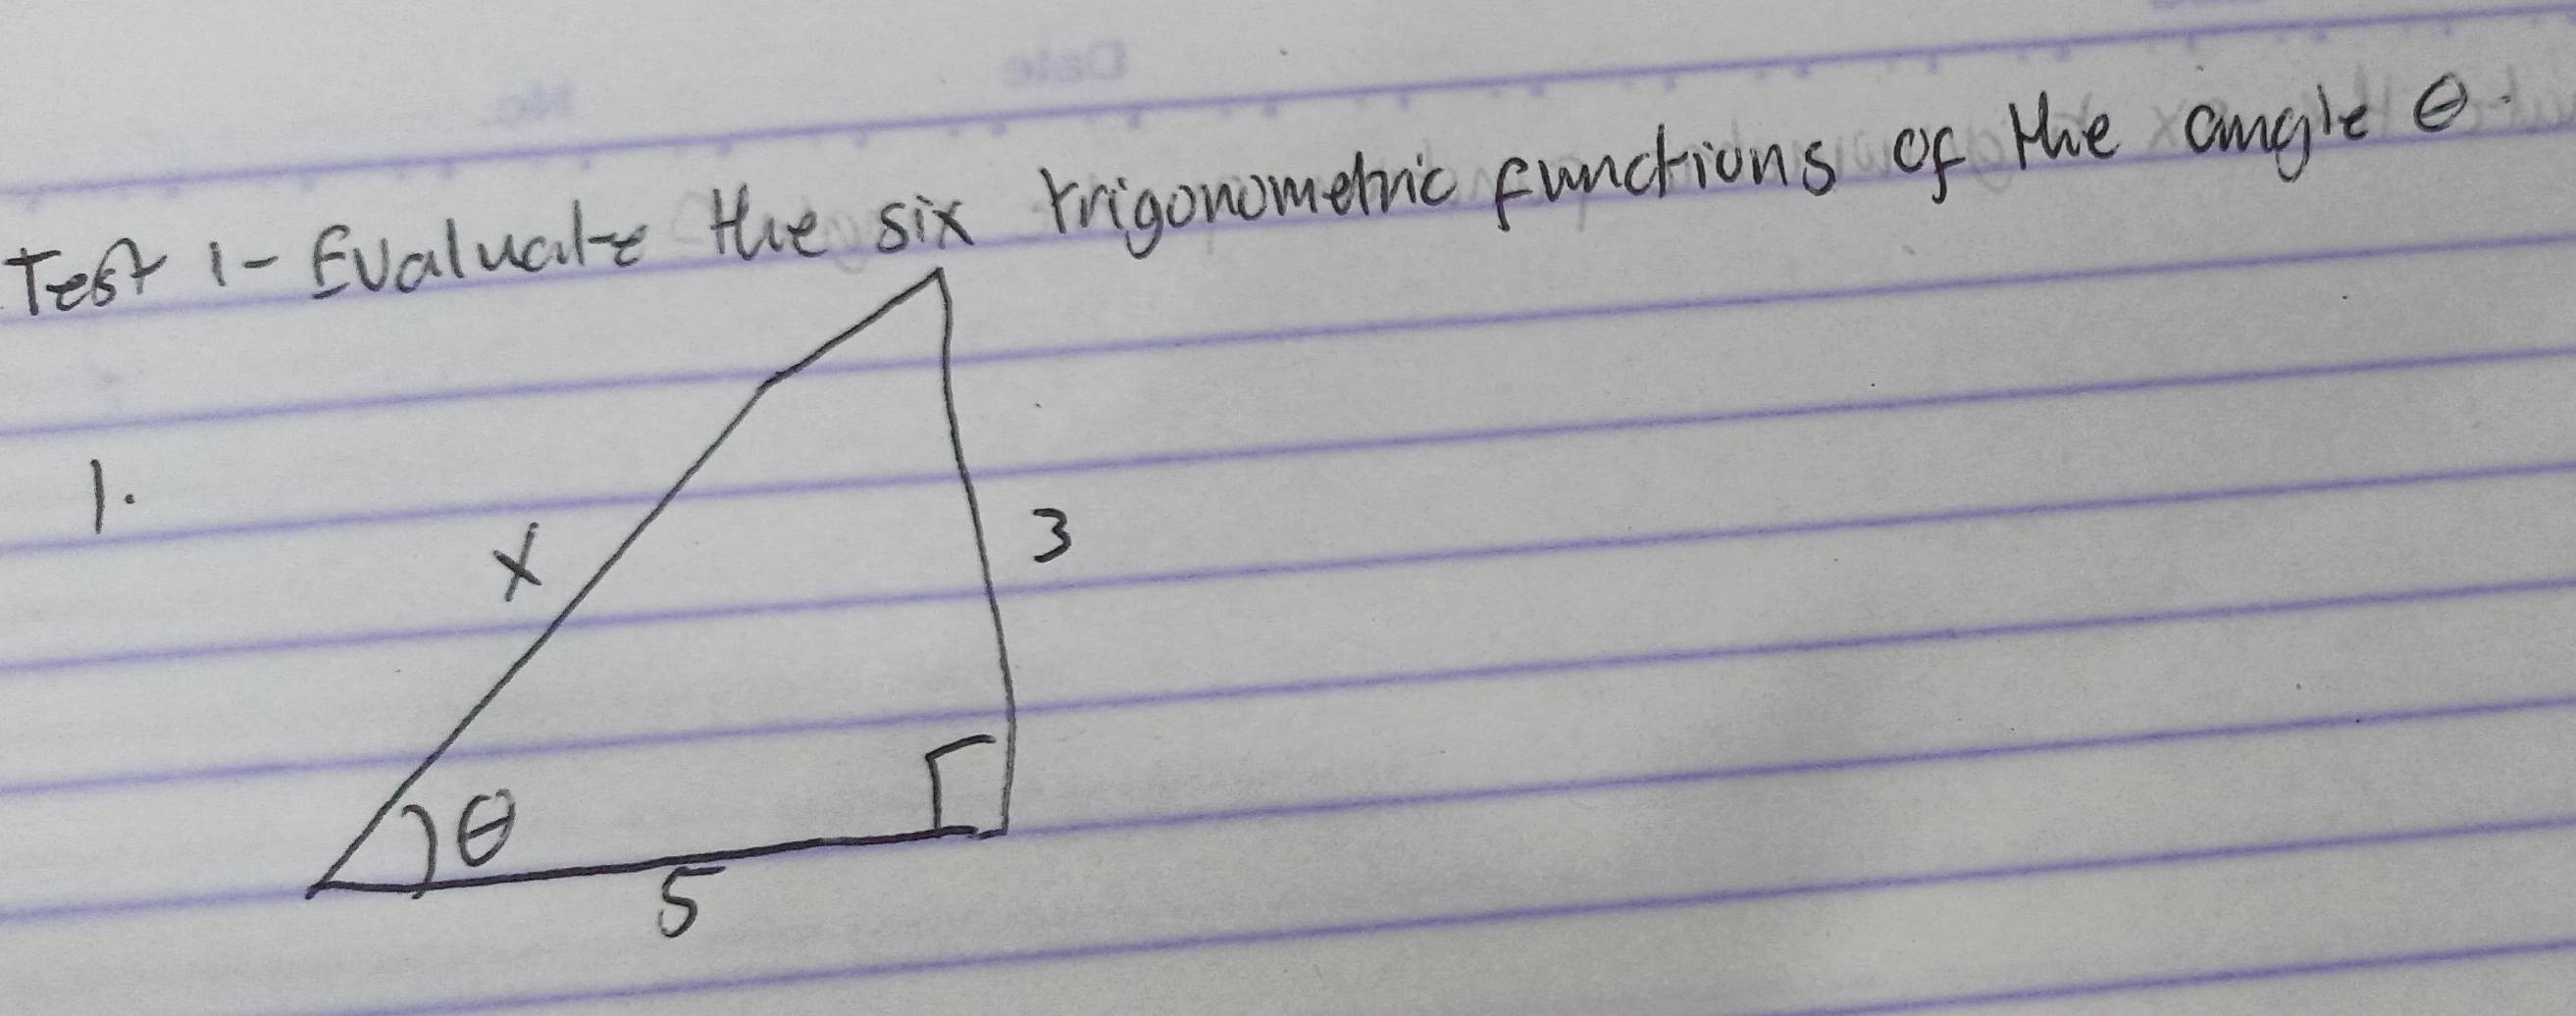 Test 1- Evaluate the six trigonometric functions of the angle θ.
1.
x
3
θ
5